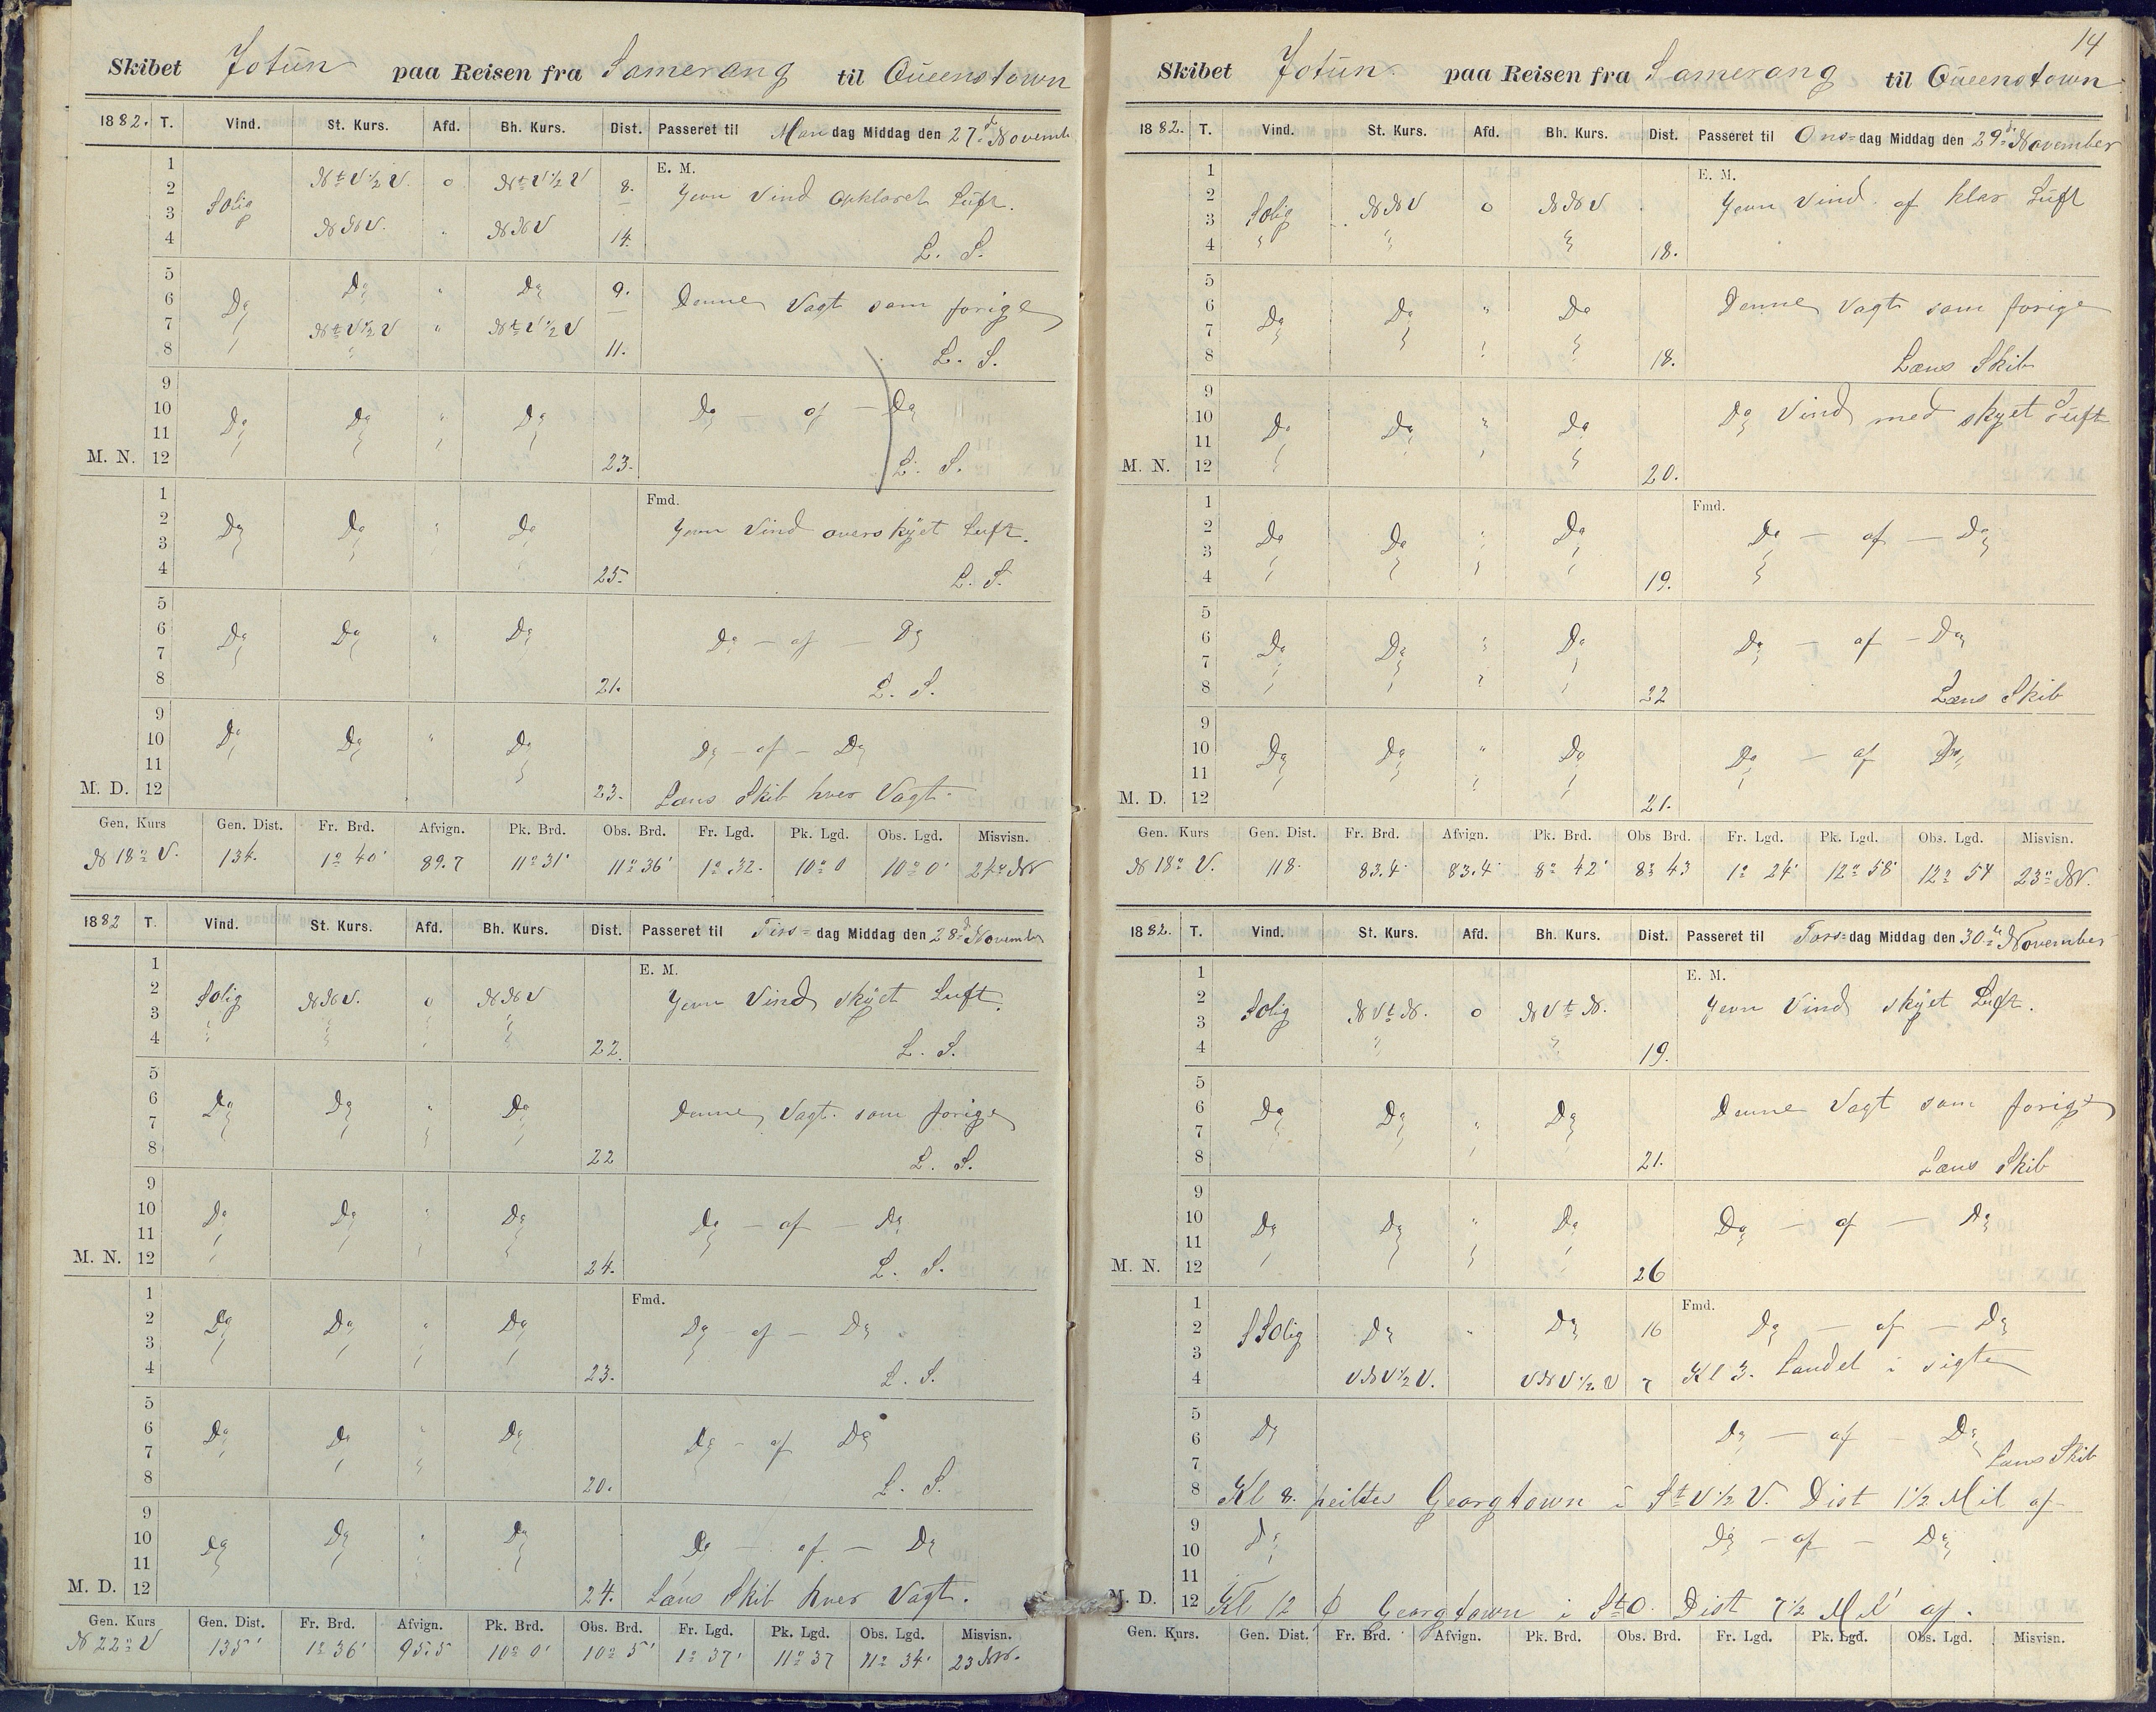 Skibet Jotun paa Reisen fra Samerang til Queenstown
1882. T. Vind. St. Kurs. Afd. Bh. Kurs. Dist. Passeret til Mandag Middag den 27de Novemb.
E. M.
1 2 3 4 Solig NtV½V. 0 NtV½V 8. Jevn Vind opklaret Luft.
NNV. " NNV 14. L. S.
5 6 7 8 Do Do " Do 9. Denne Vagt som forige
NtV½V " NtV½V 11. L. S.
9 10 11 M. N. 12 Do Do " Do 23. Do - af - Do
L. S.
Fmd.
1 2 3 4 Do Do " Do 25. Jevn Vind overskyet Luft.
L. S.
5 6 7 8 Do Do " Do 21. Do - af - Do
L. S.
9 10 11 M. D. 12 Do Do " Do 23. Do - af - Do
Læns Skib hver Vagt.
Gen. Kurs Gen. Dist. Fr. Brd. Afvign. Pk. Brd. Obs. Brd. Fr. Lgd. Pk. Lgd. Obs. Lgd. Misvisn.
N 18° V. 134. 1° 40' 89.7 11° 31' 11° 36' 1° 32. 10° 0 10° 0' 24° NV
1882 T. Vind. St. Kurs. Afd. Bh. Kurs. Dist. Passeret til Tirs=dag Middag den 28de November
E. M.
1 2 3 4 Solig NNV. 0 NNV 22. Jevn Vind skyet Luft.
L. S.
5 6 7 8 Do Do " Do 22 Denne Vagt som forige
L. S.
9 10 11 M. N. 12 Do Do " Do 24. Do - af - Do
L. S.
Fmd.
1 2 3 4 Do Do " Do 23. Do - af - Do
L. S.
5 6 7 8 Do Do " Do 20. Do - af Do
L. S.
9 10 11 M. D. 12 Do Do " Do 24. Do - af - Do
Læns Skib hver Vagt.
Gen. Kurs Gen. Dist. Fr. Brd. Afvign. Pk. Brd. Obs. Brd. Fr. Lgd. Pk. Lgd. Obs. Lgd. Misvisn.
N 22° V 135' 1° 36' 95.5 10° 0' 10° 5' 1° 37' 11° 37 11° 34' 23 NV.
14
Skibet Jotun paa Reisen fra Samerang til Queenstown
1882. T. Vind. St. Kurs. Afd. Bh. Kurs. Dist. Passeret til Ons=dag Middag den 29de November
E. M.
1 2 3 4 Solig NNV 0 NNV 18. Jevn Vind af klar Luft
5 6 7 8 Do Do " Do 18. Denne Vagt som forige
Læns Skib
9 10 11 M. N. 12 Do Do " Do 20. Do Vind med skyet Luft
Fmd.
1 2 3 4 Do Do " Do 19. Do - af - Do
5 6 7 8 Do Do " Do 22 Do - af - Do
Læns Skib
9 10 11 M. D. 12 Do Do " Do 21. Do - af Do
Gen. Kurs Gen. Dist. Fr. Brd. Afvign. Pk. Brd. Obs Brd. Fr. Lgd. Pk. Lgd. Obs. Lgd. Misvisn.
N 18° V. 118. 83.4 83.4 8° 42' 8° 43 1° 24' 12° 58' 12° 54 23° NV.
1882. T. Vind. St. Kurs. Afd. Bh. Kurs. Dist. Passeret til Tors=dag Middag den 30te November
E. M.
1 2 3 4 Solig NVtN. 0 NVtN. 19. Jevn Vind skyet Luft.
5 6 7 8 Do Do " Do 21. Denne Vagt som forige
Læns Skib
9 10 11 M. N. 12 Do Do " Do 26 Do - af - Do
Fmd.
1 2 3 4 SSolig Do " Do 16 Do - af - Do
VNV½V. VNV½V 7 Kl 3. Landet i sigte
5 6 7 Do Do - af - Do
Læns Skib
8 Kl 8. peiltes Georgtown i StV½V. Dist 1½ Mil af
9 10 11 Do Do - af - Do
M. D. 12 Kl 12 p Georgtown i StO. Dist 7½ Mil af.
Gen. Kurs. Gen. Dist. Fr. Brd. Afvign. Pk. Brd. Obs. Brd. Fr. Lgd. Pk. Lgd. Obs. Lgd. Misvisn.